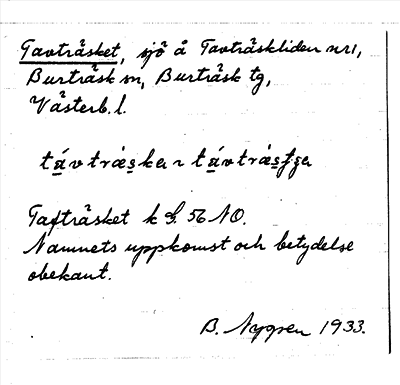 Tavträsket, sjö å Tavträskliden nr 1,
Burträsk sn, Burträsk tg,
Västerb. l.
távtrǽskaʌ távtrǽsʃʒa
Tafträsket k. bl. 56 NO.
Namnets uppkomst och betydelse
obekant.
B. Nygren 1933.